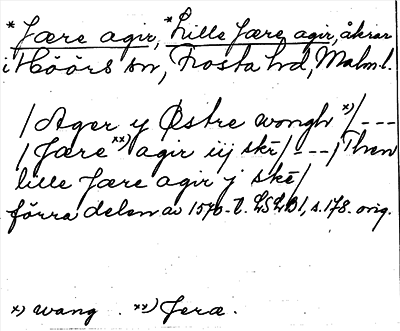 *Jære agir, *Lille Jære agir, åkrar
i Höörs sn, Frosta hd, Malm. l.
/Ager y Østre wongh x)/---
/Jære xx) agir iij skē/---/Then
lille Jære agir j skē/
förra delen av 1570-t. LSLB1, s. 178. orig.
x) wang . xx) Jera.